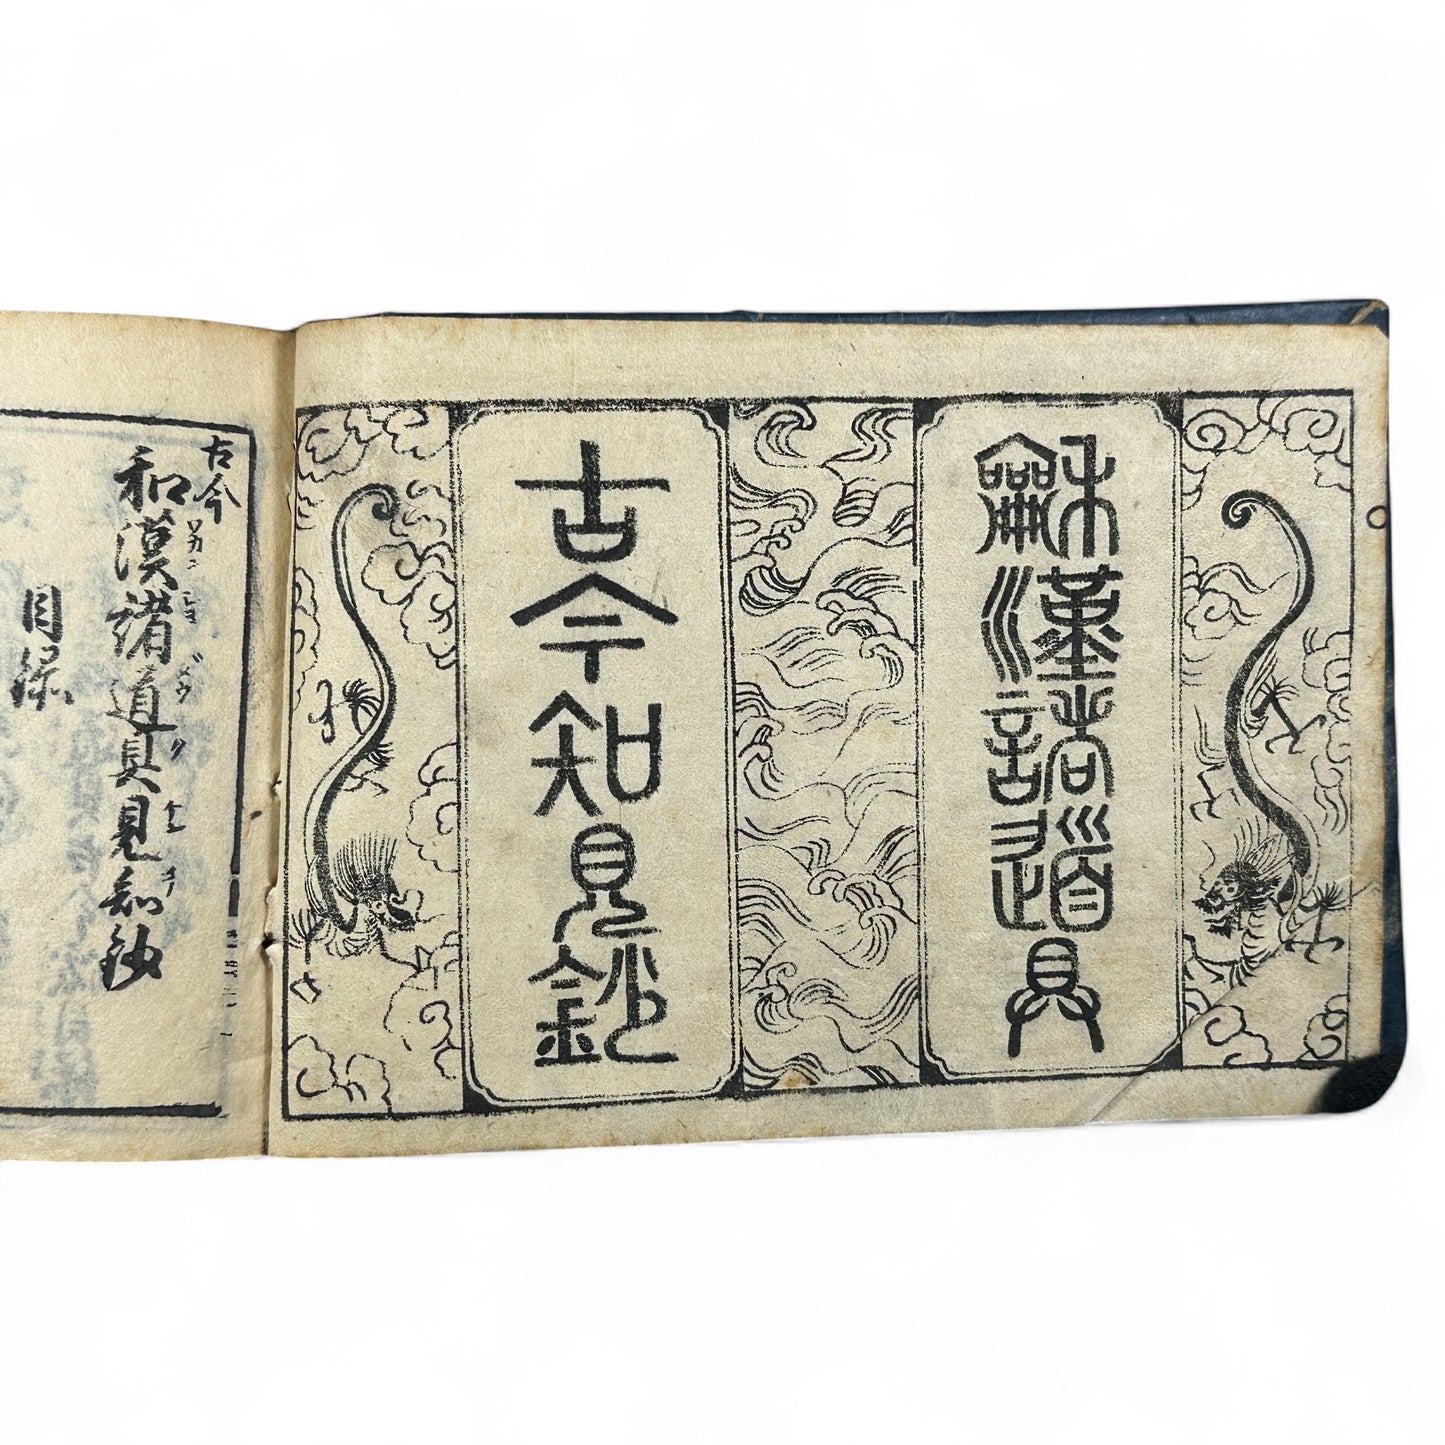 龢漢諸道具
古今知見鈔
古今
和漢諸道具見知鈔
ワカン シヨ ダウグ ケンチ
目録